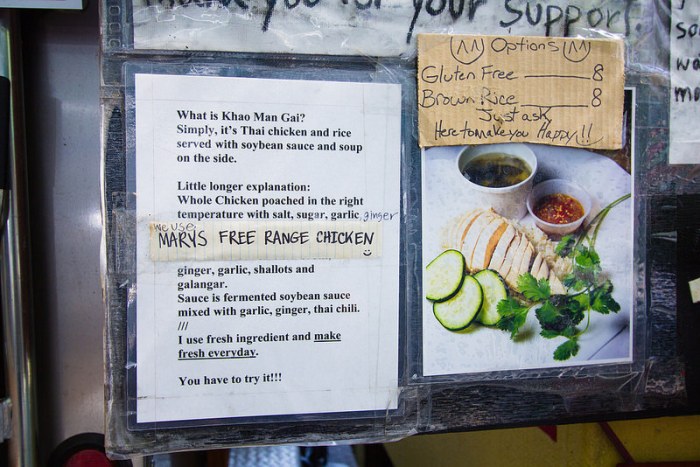 for your Support.
What is Khao Man Gai?
Simply, it's Thai chicken and rice
served with soybean sauce and soup
on the side.
Little longer explanation:
Whole Chicken poached in the right
temperature with salt, sugar, garlic, ginger
we use
MARYS FREE RANGE CHICKEN
ginger, garlic, shallots and
galangar.
Sauce is fermented soybean sauce
mixed with garlic, ginger, thai chili.
///
I use fresh ingredient and make
fresh everyday.
You have to try it!!!
Options
Gluten Free 8
Brown Rice 8
Just ask
Here to make you Happy!!